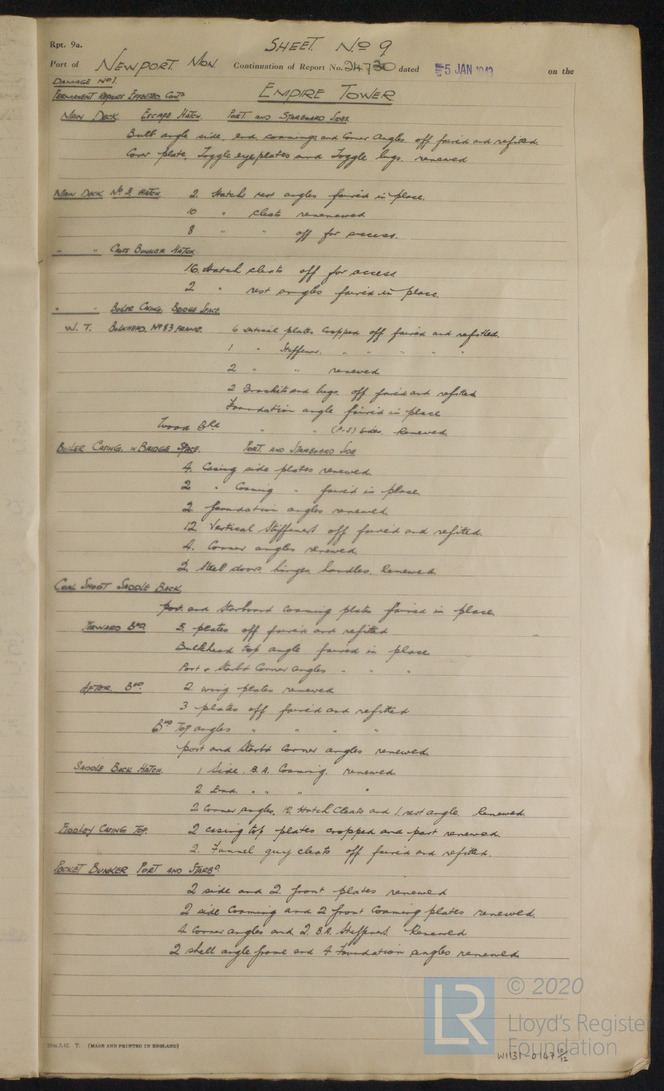 Rpt. 9a.
SHEET. No 9
Port of NEWPORT. MON Continuation of Report No. 24730 dated 5 JAN 1943 on the
DAMAGE No 1.
PERMANENT REPAIRS EFFECTED CONTD
EMPIRE TOWER
MAIN DECK ESCAPE HATCH. PORT. AND STARBOARD SIDE.
Bulb angle side, end, coamings and corner angles off faired and refitted.
Cover plate, Toggle eyeplates and Toggle lugs renewed
MAIN DECK No 2 HATCH. 2. Hatch rest angles faired in place.
10 " cleats renewed
8 " " off for access.
" " CROSS BUNKER HATCH
16. Hatch cleats off for access
2 " rest angles faired in place.
" " BOILER CASING. BRIDGE SPACE.
W. T. BULKHEAD. No 83 FRAME. 6 vertical plates cropped off faired and refitted.
1 " Stiffener. " " " " "
2 " " renewed
2 Brackets and lugs. off faired and refitted
Foundation angle faired in place
Wood Bhd " " (P.S) sides. Renewed
BOILER CASING. in BRIDGE SPACE. PORT. AND STARBOARD SIDE
4. Casing side plates renewed.
2 " Coaming " faired in place
2 foundation angles renewed
12 Vertical Stiffeners off faired and refitted.
4. Corner angles renewed.
2. Steel doors hinges handles. Renewed.
COAL SHOOT SADDLE BACK
port. and starboard coaming plates faired in place.
FORWARD BHD. 3. plates off faired and refitted
Bulkhead top angle faired in place
Port & Starbd Corner angles " " "
AFTER BHD. 2 wing plates renewed
3 plates off faired and refitted
BHD Top angles " " " "
port and Starbd Corner angles renewed
SADDLE BACK HATCH. 1 Side. B.A. Coaming. renewed
2 End. " " "
2 Corner angles. 12 Hatch Cleats and 1 rest angle. Renewed.
FIDDLEY CASING TOP. 2 casing top plates cropped and part renewed.
2. Funnel guy cleats off faired and refitted.
POCKET BUNKER PORT AND STARBD
2 side and 2. front plates renewed
2 side Coaming and 2 front Coaming plates renewed.
4 Corner angles and 2. B.A. Stiffeners Renewed
2 shell angle frame and 4 Foundation angles renewed.
(MADE AND PRINTED IN ENGLAND)
LR
© 2020
Lloyd's Register
Foundation
W1131-0167 6/12